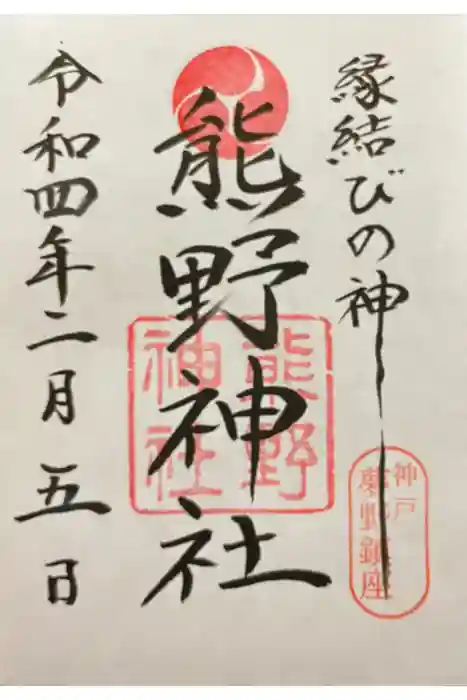 縁結びの神
神戸
夢野鎮座
熊野神社
熊野
神社
令和四年二月五日